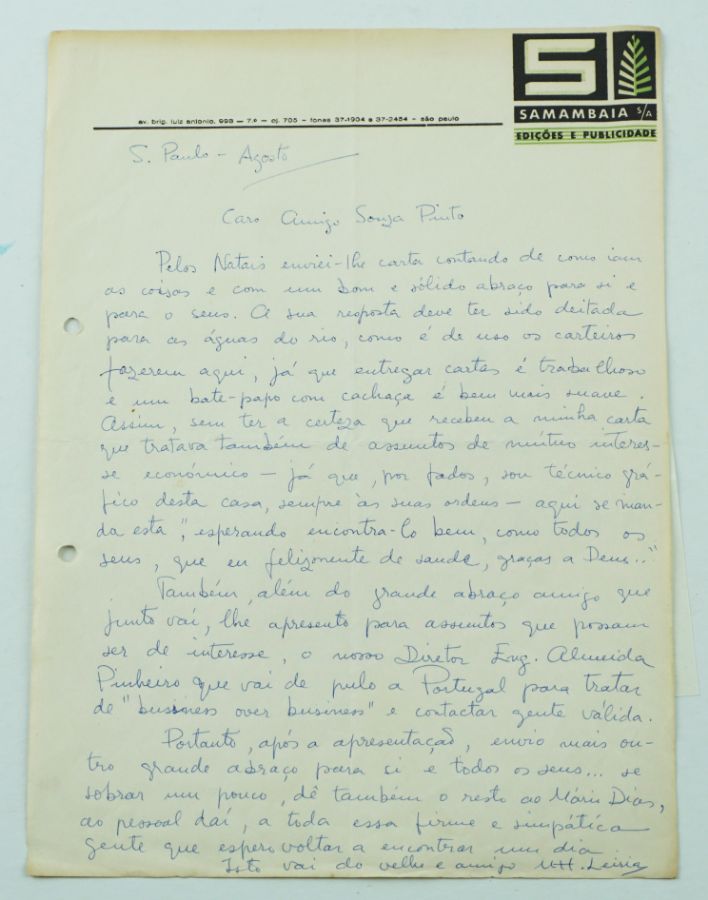 S
SAMAMBAIA S/A
EDIÇÕES E PUBLICIDADE
av. brig. luiz antonio, 993 — 7.º — cj. 705 – fones 37-1904 e 37-2454 – são paulo
S. Paulo – Agosto
Caro Amigo Souza Pinto
Pelos Natais enviei-lhe carta contando de como iam
as coisas e com um bom e sólido abraço para si e
para o seus. A sua resposta deve ter sido deitada
para as águas do rio, como é de uso os carteiros
fazerem aqui, já que entregar cartas é trabalhoso
e um bate-papo com cachaça é bem mais suave.
Assim, sem ter a certeza que recebeu a minha carta
que tratava também de assuntos de mútuo interes-
se económico — já que, por fados, sou técnico grá-
fico desta casa, sempre às suas ordens — aqui se man-
da esta, "esperando encontra-lo bem, como todos os
seus, que eu felizmente de saude, graças a Deus..."
Também, além do grande abraço amigo que
junto vai, lhe apresento para assuntos que possam
ser de interesse, o nosso Diretor Eng. Almeida
Pinheiro que vai de pulo a Portugal para tratar
de "business over business" e contactar gente válida.
Portanto, após a apresentação, envio mais ou-
tro grande abraço para si e todos os seus... se
sobrar um pouco, dê também o resto ao Mário Dias,
ao pessoal daí, a toda essa firme e simpática
gente que espero voltar a encontrar um dia.
Isto vai do velho e amigo MH. Leiria